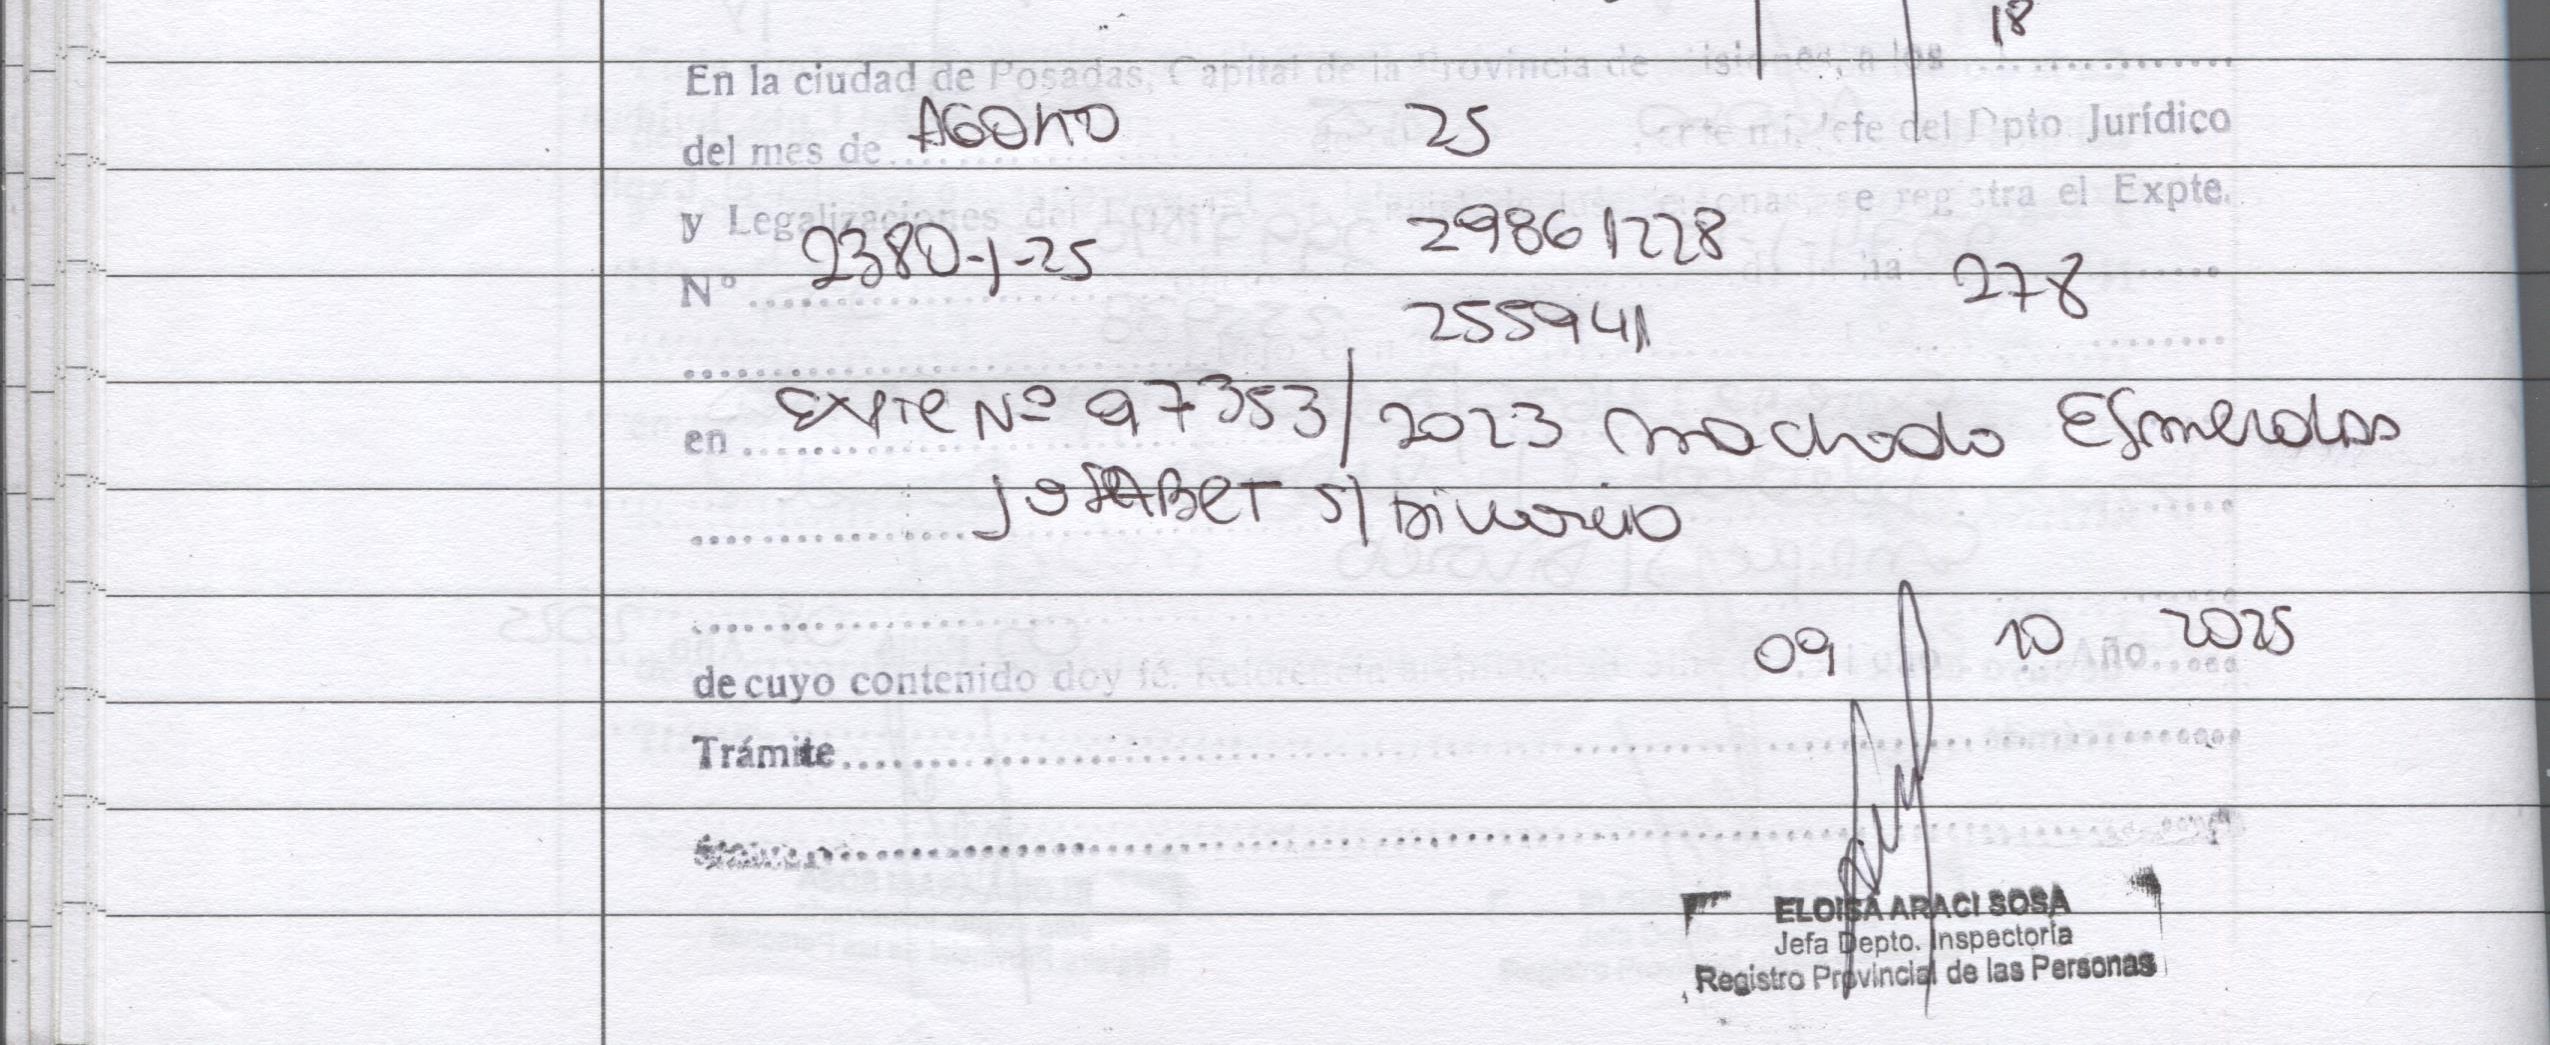 18
En la ciudad de Posadas, Capital de la Provincia de Misiones, a los
del mes de AGOSTO 25 Jefe del Dpto Jurídico
y Legalizaciones del se registra el Expte.
Nº 2380-J-25 29861228 278
255941
en Expte Nº 97353/2023 Machado Esmeraldas
JOSABET S/ Divorcio
09 10 Año 2025
de cuyo contenido doy fé. Referencia
Trámite
ELOISA ARACI SOSA
Jefa Depto. Inspectoría
Registro Provincial de las Personas